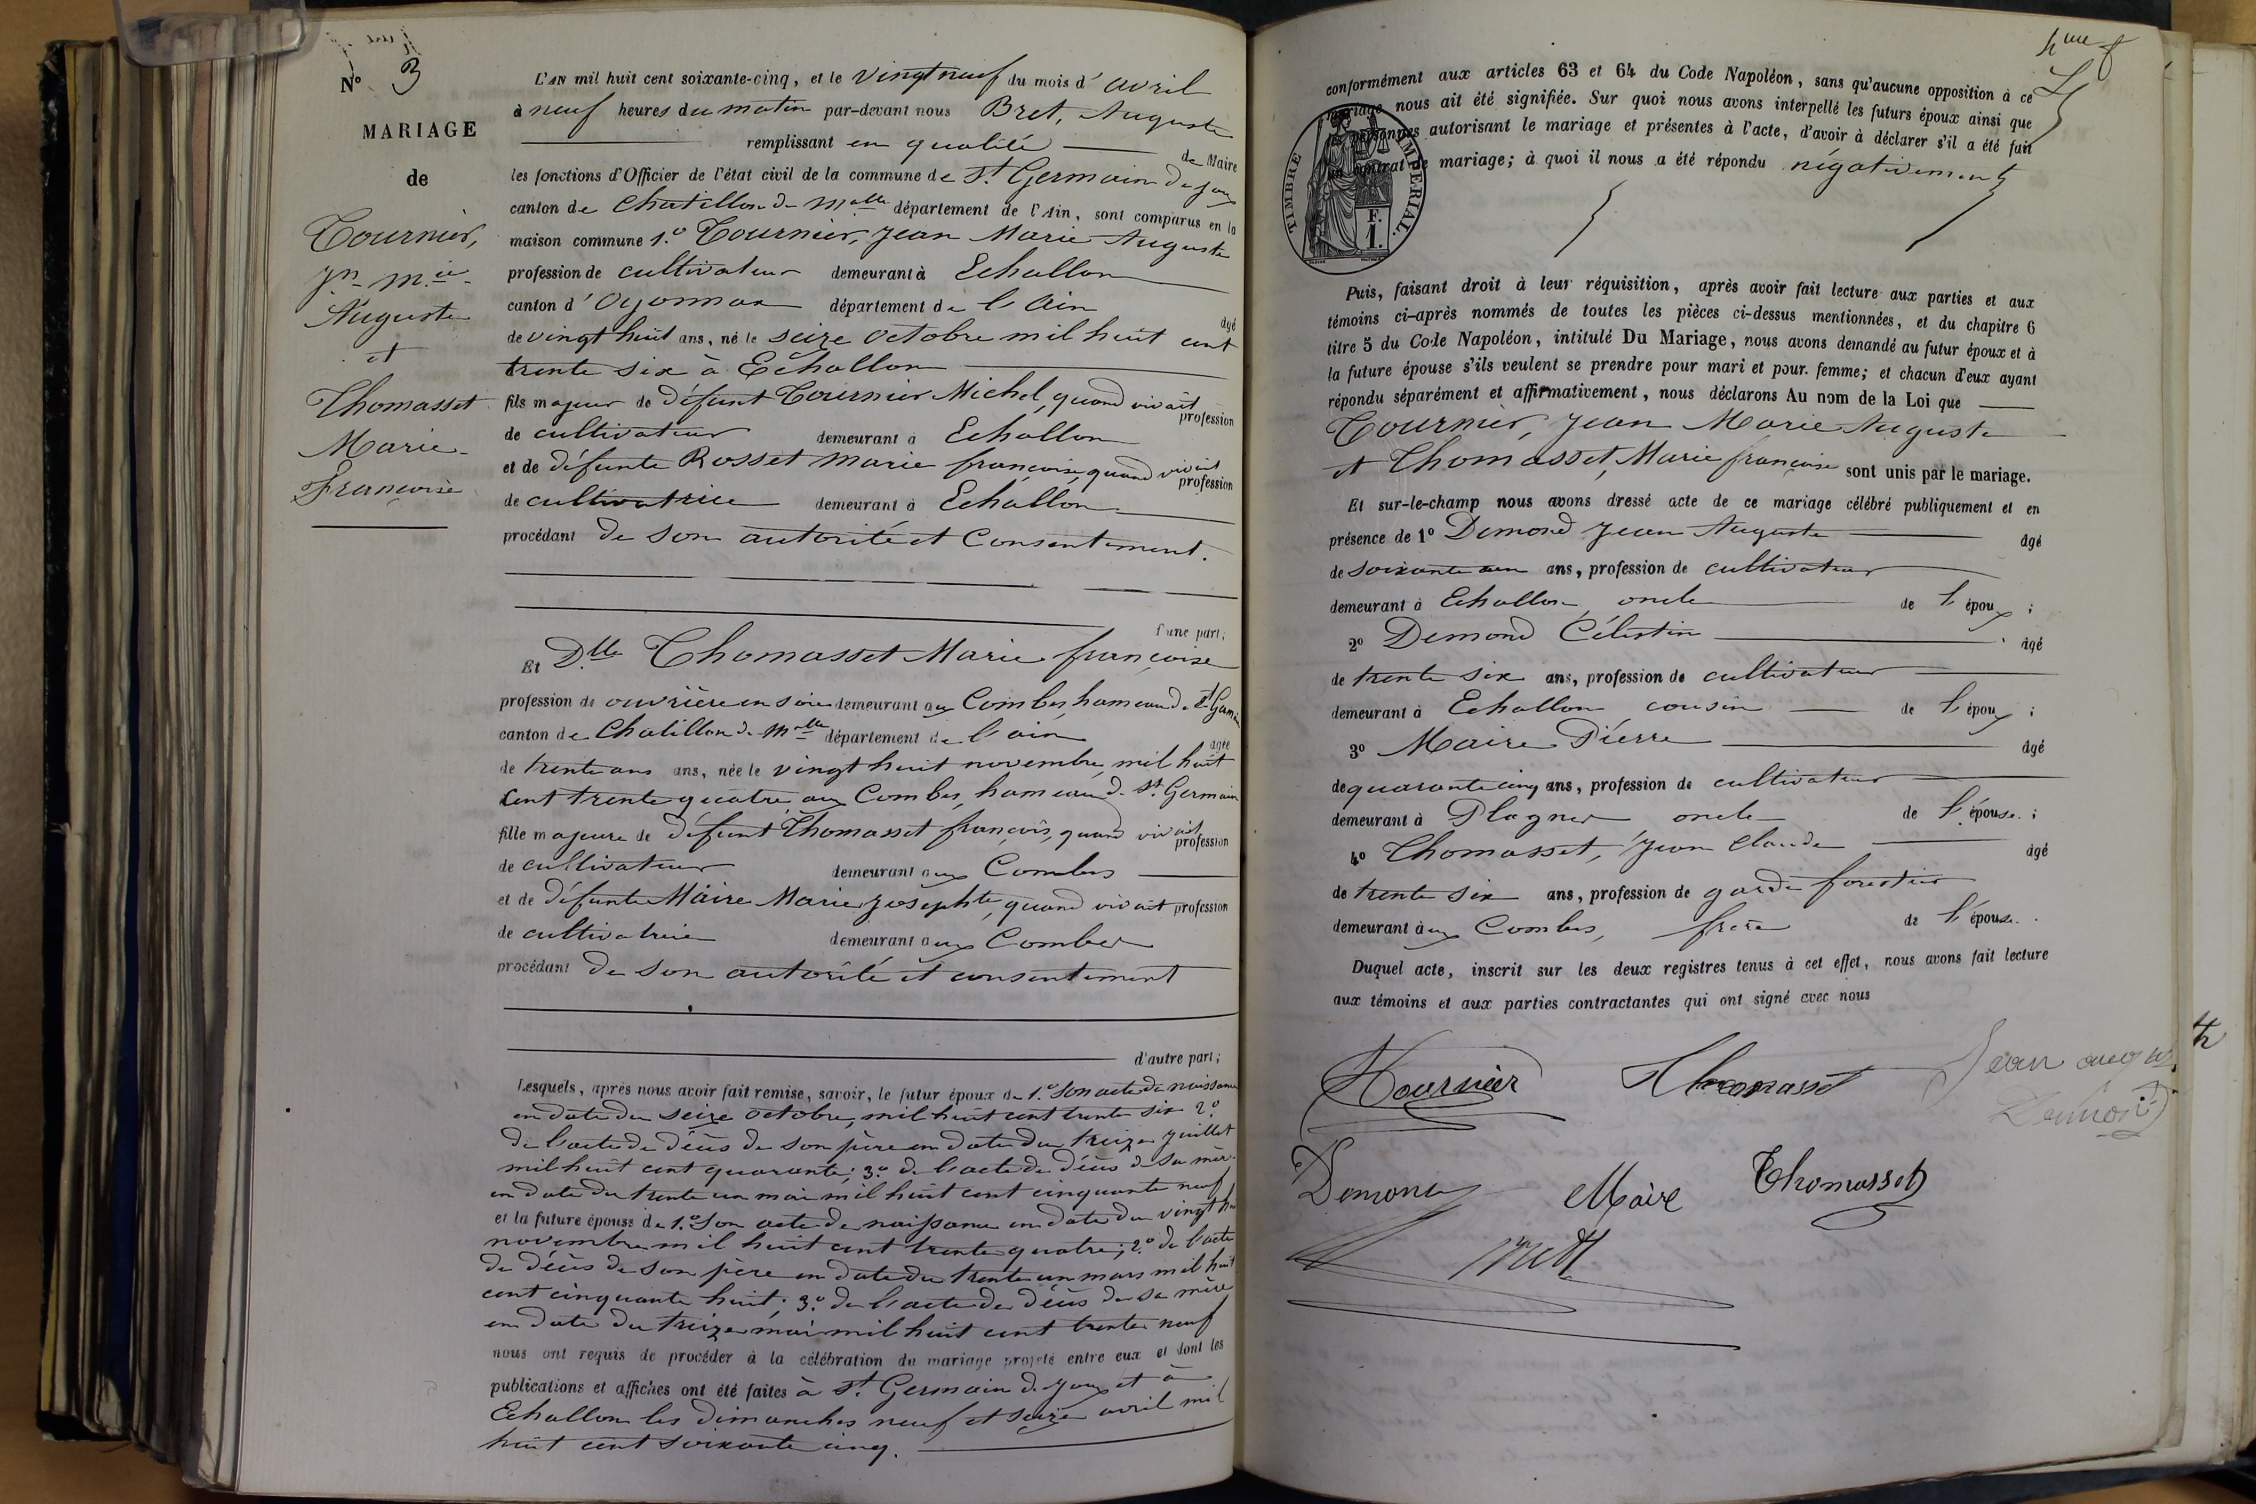 N° 3
MARIAGE
de
Tournier,
Jn Mie
Auguste
et
Thomasset
Marie
Françoise
L'AN mil huit cent soixante-cinq, et le vingt neuf du mois d'avril
à neuf heures du matin par-devant nous Bret, Auguste
remplissant en qualité de Maire
les fonctions d'Officier de l'état civil de la commune de St Germain de Joux
canton de Chatillon de Mlle département de l'Ain, sont comparus en la
maison commune 1.° Tournier, Jean Marie Auguste
profession de cultivateur demeurant à Echallon
canton d'Oyonnax département de l'Ain
âgé
de vingt huit ans, né le seize octobre mil huit cent
trente six à Echallon
fils majeur de défunt Tournier Michel, quand vivait profession
de cultivateur demeurant à Echallon
et de défunte Rosset Marie françoise, quand vivait profession
de cultivatrice demeurant à Echallon
procédant de son autorité et Consentement.
d'une part;
Et Dlle Thomasset Marie françoise
profession de ouvrière en soie demeurant aux Combes, hameau de St Germain
canton de Chatillon de Mlle département de l'ain
âgée
de trente ans ans, née le vingt huit novembre, mil huit
cent trente quatre aux Combes, hameau de St Germain
fille majeure de défunt Thomasset françois, quand vivait profession
de cultivateur demeurant aux Combes
et de défunte Maire Marie Josephte, quand vivait profession
de cultivatrice demeurant aux Combes
procédant de son autorité et consentement
d'autre part;
Lesquels, après nous avoir fait remise, savoir, le futur époux de 1.° Son acte de naissance
en date du seize octobre, mil huit cent trente six 2.°
de l'acte de décès de son père en date du treize juillet
mil huit cent quarante; 3.° de l'acte de décès de sa mère
en date du trente un mai mil huit cent cinquante neuf
et la future épouse de 1.° Son acte de naissance en date du vingt huit
novembre mil huit cent trente quatre; 2.° de l'acte
de décès de son père en date du trente un mars mil huit
cent cinquante huit; 3.° de l'acte de décès de sa mère
en date du treize mai mil huit cent trente neuf
nous ont requis de procéder à la célébration du mariage projeté entre eux et dont les
publications et affiches ont été faites à St Germain de Joux et à
Echallon les dimanches neuf et seize avril mil
huit cent soixante cinq.
conformément aux articles 63 et 64 du Code Napoléon, sans qu'aucune opposition à ce
mariage nous ait été signifiée. Sur quoi nous avons interpellé les futurs époux ainsi que
les personnes autorisant le mariage et présentes à l'acte, d'avoir à déclarer s'il a été fait
un contrat de mariage; à quoi il nous a été répondu négativement
TIMBRE IMPERIAL.
F.
1.
Puis, faisant droit à leur réquisition, après avoir fait lecture aux parties et aux
témoins ci-après nommés de toutes les pièces ci-dessus mentionnées, et du chapitre 6
titre 5 du Code Napoléon, intitulé Du Mariage, nous avons demandé au futur époux et à
la future épouse s'ils veulent se prendre pour mari et pour femme; et chacun d'eux ayant
répondu séparément et affirmativement, nous déclarons Au nom de la Loi que
Tournier, Jean Marie Auguste
et Thomasset, Marie françoise sont unis par le mariage.
Et sur-le-champ nous avons dressé acte de ce mariage célébré publiquement et en
présence de 1° Demond Jean Auguste âgé
de soixante un ans, profession de cultivateur
demeurant à Echallon, oncle de l'époux;
2° Demond Célestin âgé
de trente six ans, profession de cultivateur
demeurant à Echallon cousin de l'époux;
3° Maire Pierre âgé
de quarante cinq ans, profession de cultivateur
demeurant à Plagnes oncle de l'épouse;
4° Thomasset, Jean Claude âgé
de trente six ans, profession de garde forestier
demeurant aux Combes, frère de l'épouse.
Duquel acte, inscrit sur les deux registres tenus à cet effet, nous avons fait lecture
aux témoins et aux parties contractantes qui ont signé avec nous
Tournier Thomasset Jean augus
Demond
Demond Maire Thomasset
Bret